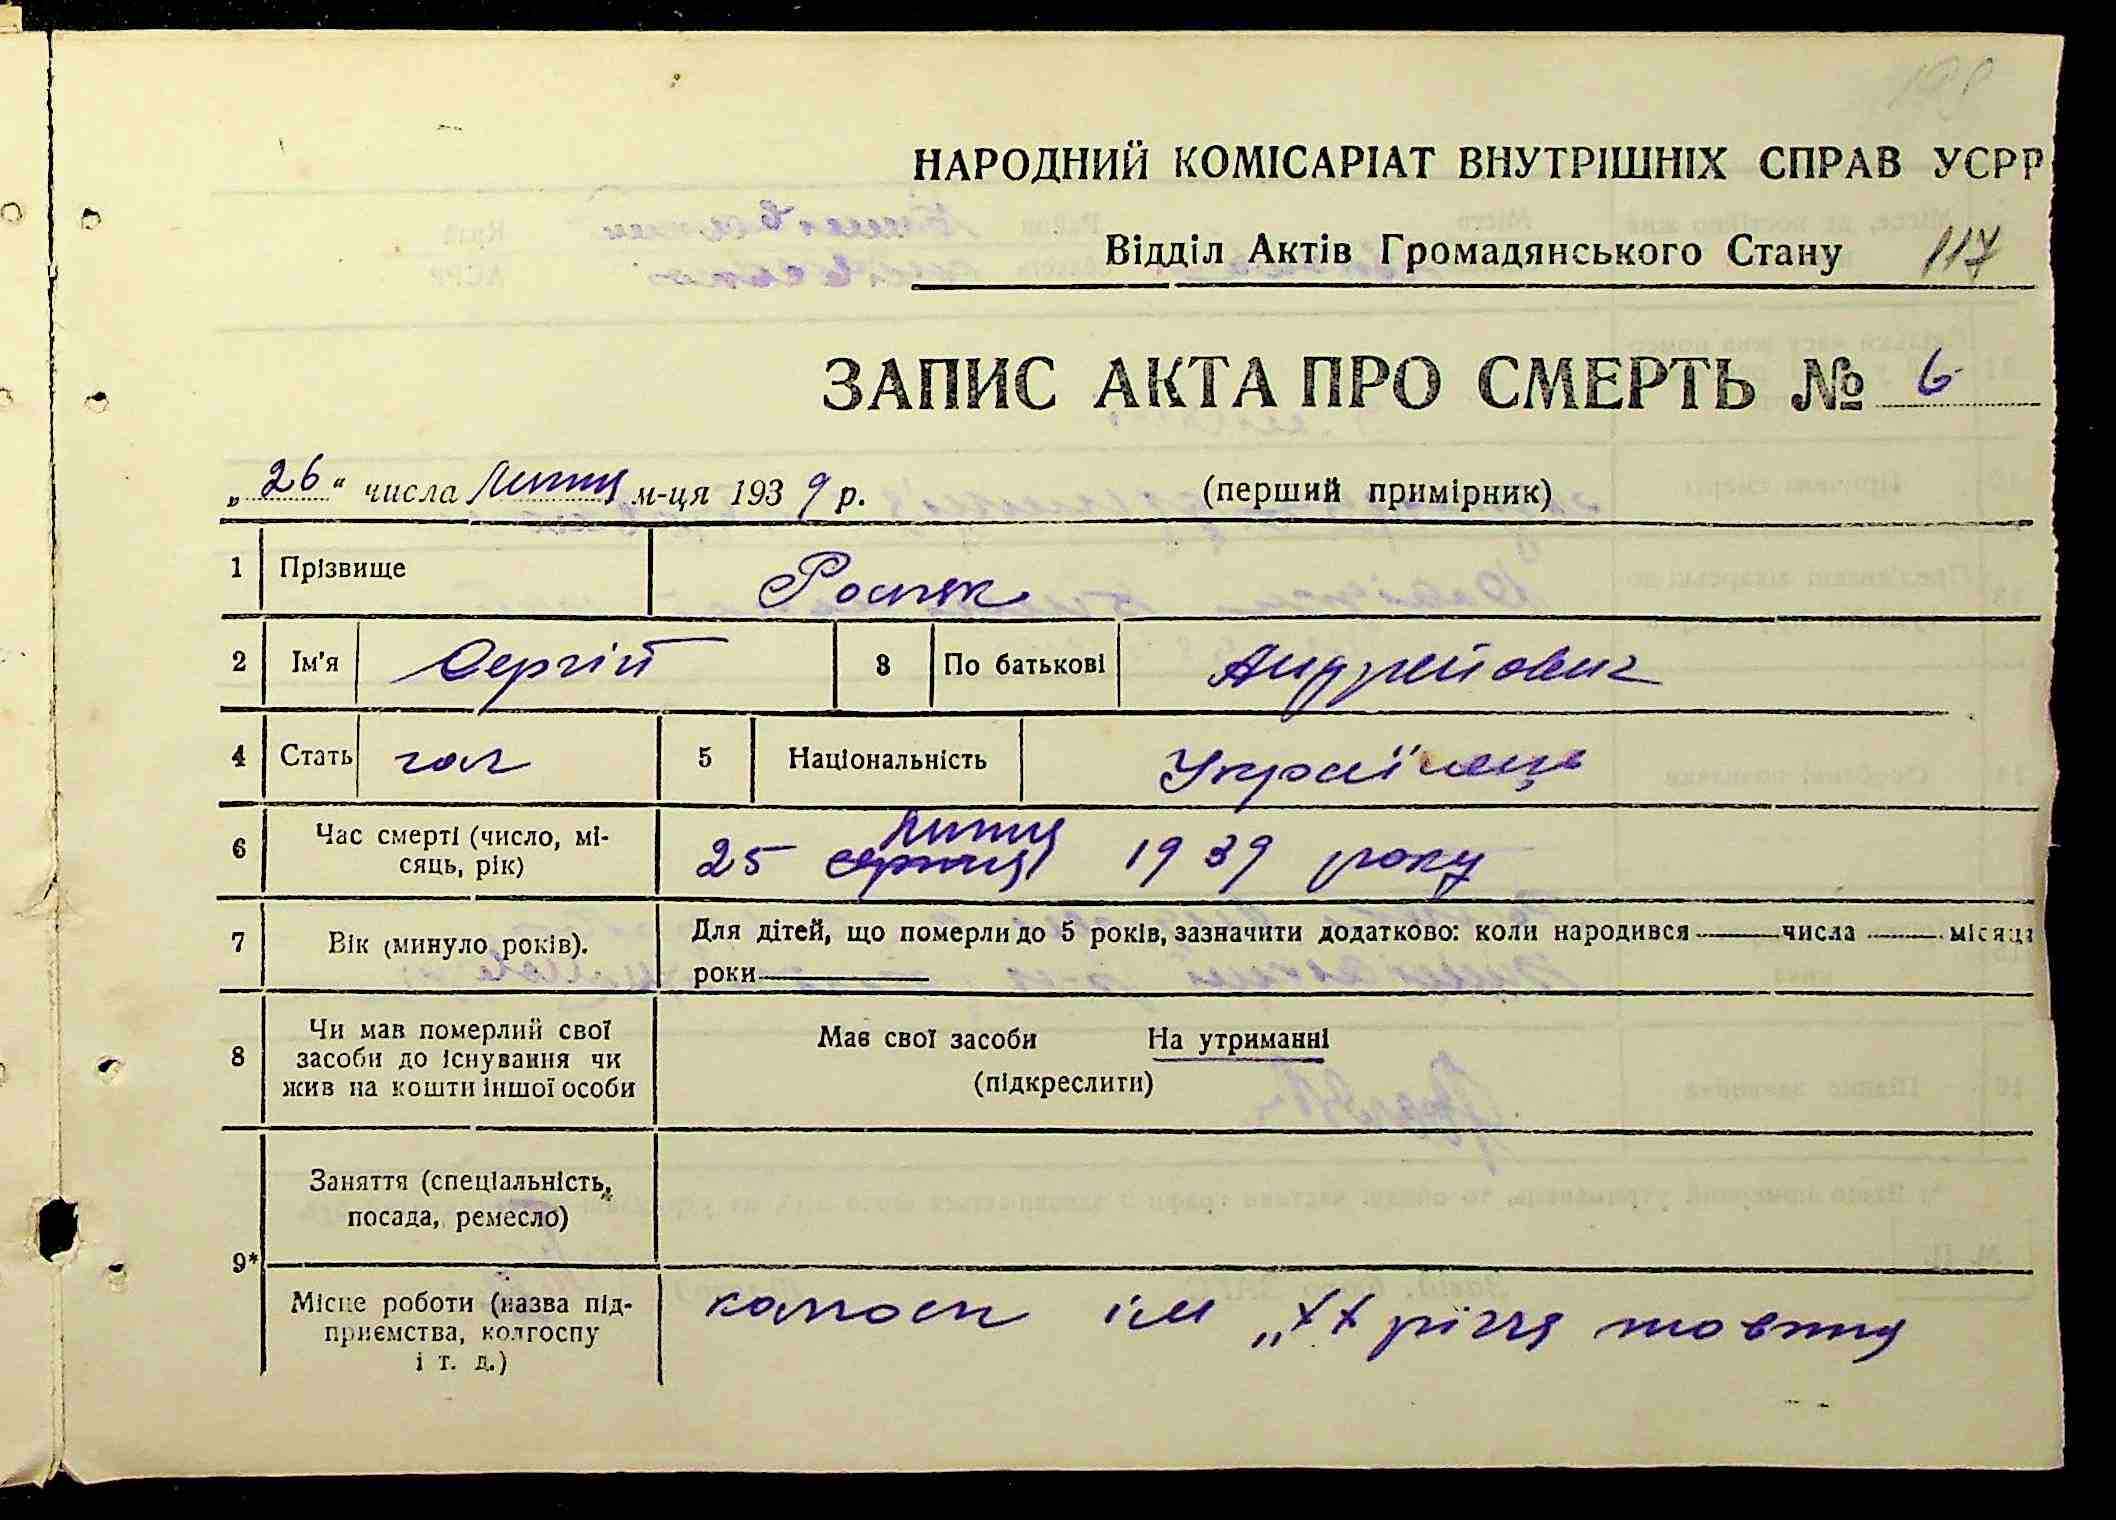 НАРОДНИЙ КОМІСАРІАТ ВНУТРІШНІХ СПРАВ УСРР
Відділ Актів Громадянського Стану 117
ЗАПИС АКТА ПРО СМЕРТЬ № 6
„26“ числа Липця м-ця 1939 р. (перший примірник)
1 Прізвище Роспяк
2 Ім'я Сергій 3 По батькові Андрейович
4 Стать чол 5 Національність Українець
Липця
6 Час смерті (число, мі-
сяць, рік) 25 серпня 1939 року
7 Вік (минуло років). Для дітей, що померли до 5 років, зазначити додатково: коли народився числа місяця
роки
8 Чи мав померлий свої
засоби до існування чи
жив на кошти іншої особи Мав свої засоби На утриманні
(підкреслити)
9* Заняття (спеціальність,
посада, ремесло)
Місце роботи (назва під-
приємства, колгоспу
і т. д.) ім „ХХ річчя жовтня